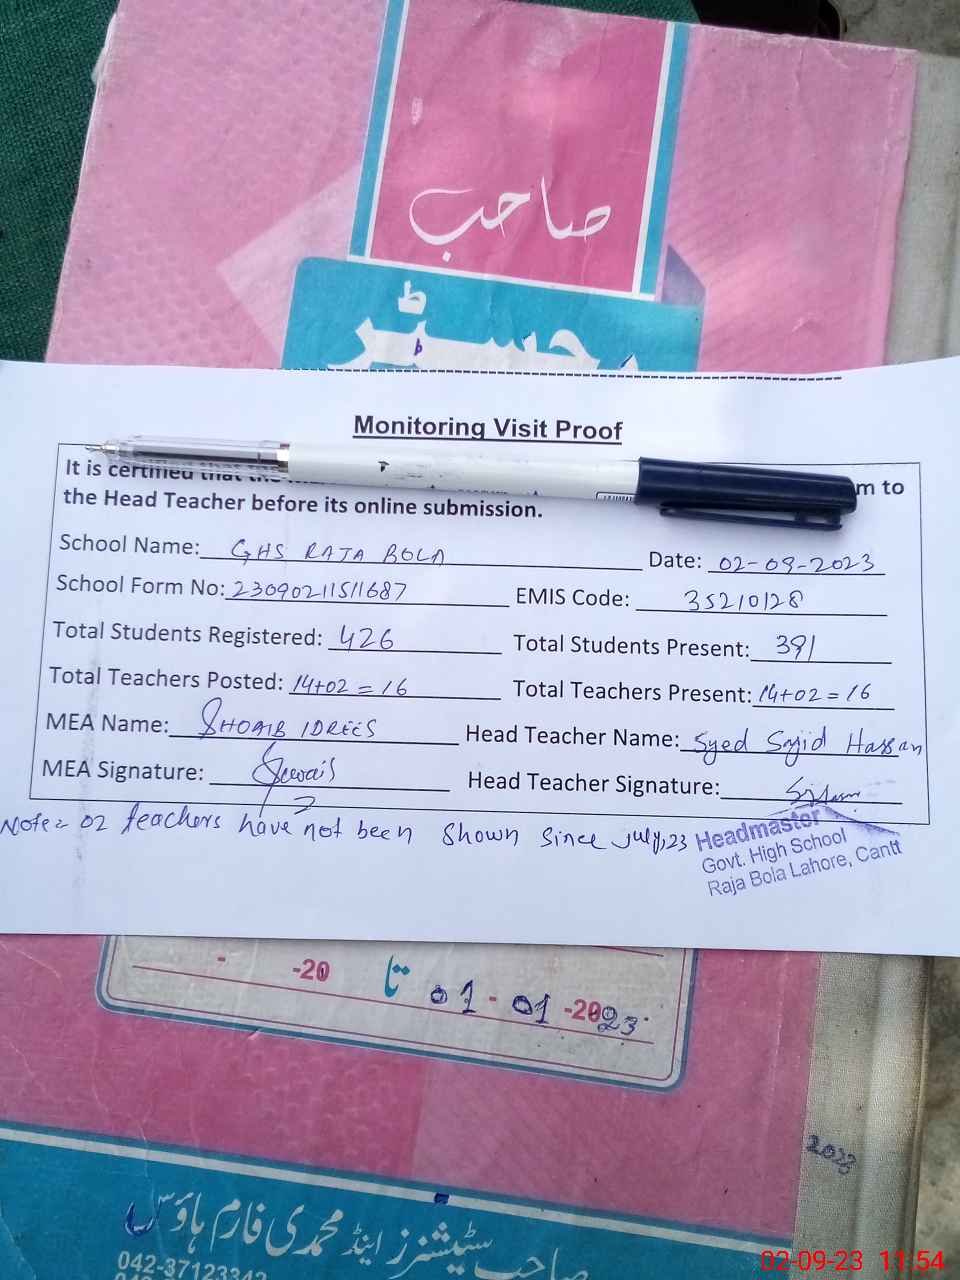 صاحب
رجسٹر
Monitoring Visit Proof
It is certified that the
m to
the Head Teacher before its online submission.
School Name: GHS RAJA BOLA
Date: 02-09-2023
School Form No: 23090211511687
EMIS Code: 35210128
Total Students Registered: 426
Total Students Present: 391
Total Teachers Posted: 14+02 = 16
Total Teachers Present: 14+02 = 16
MEA Name: SHOAIB IDREES
Head Teacher Name: Syed Sajid Hassan
MEA Signature:
Head Teacher Signature:
Note= 02 teachers have not been shown since July,23
Headmaster
Govt. High School
Raja Bola Lahore, Cantt
- -20 تا 01 - 01 -2023
2023
صاحب سٹیشنرز اینڈ محمدی فارم ہاؤس
042-37123342
02-09-23 11:54